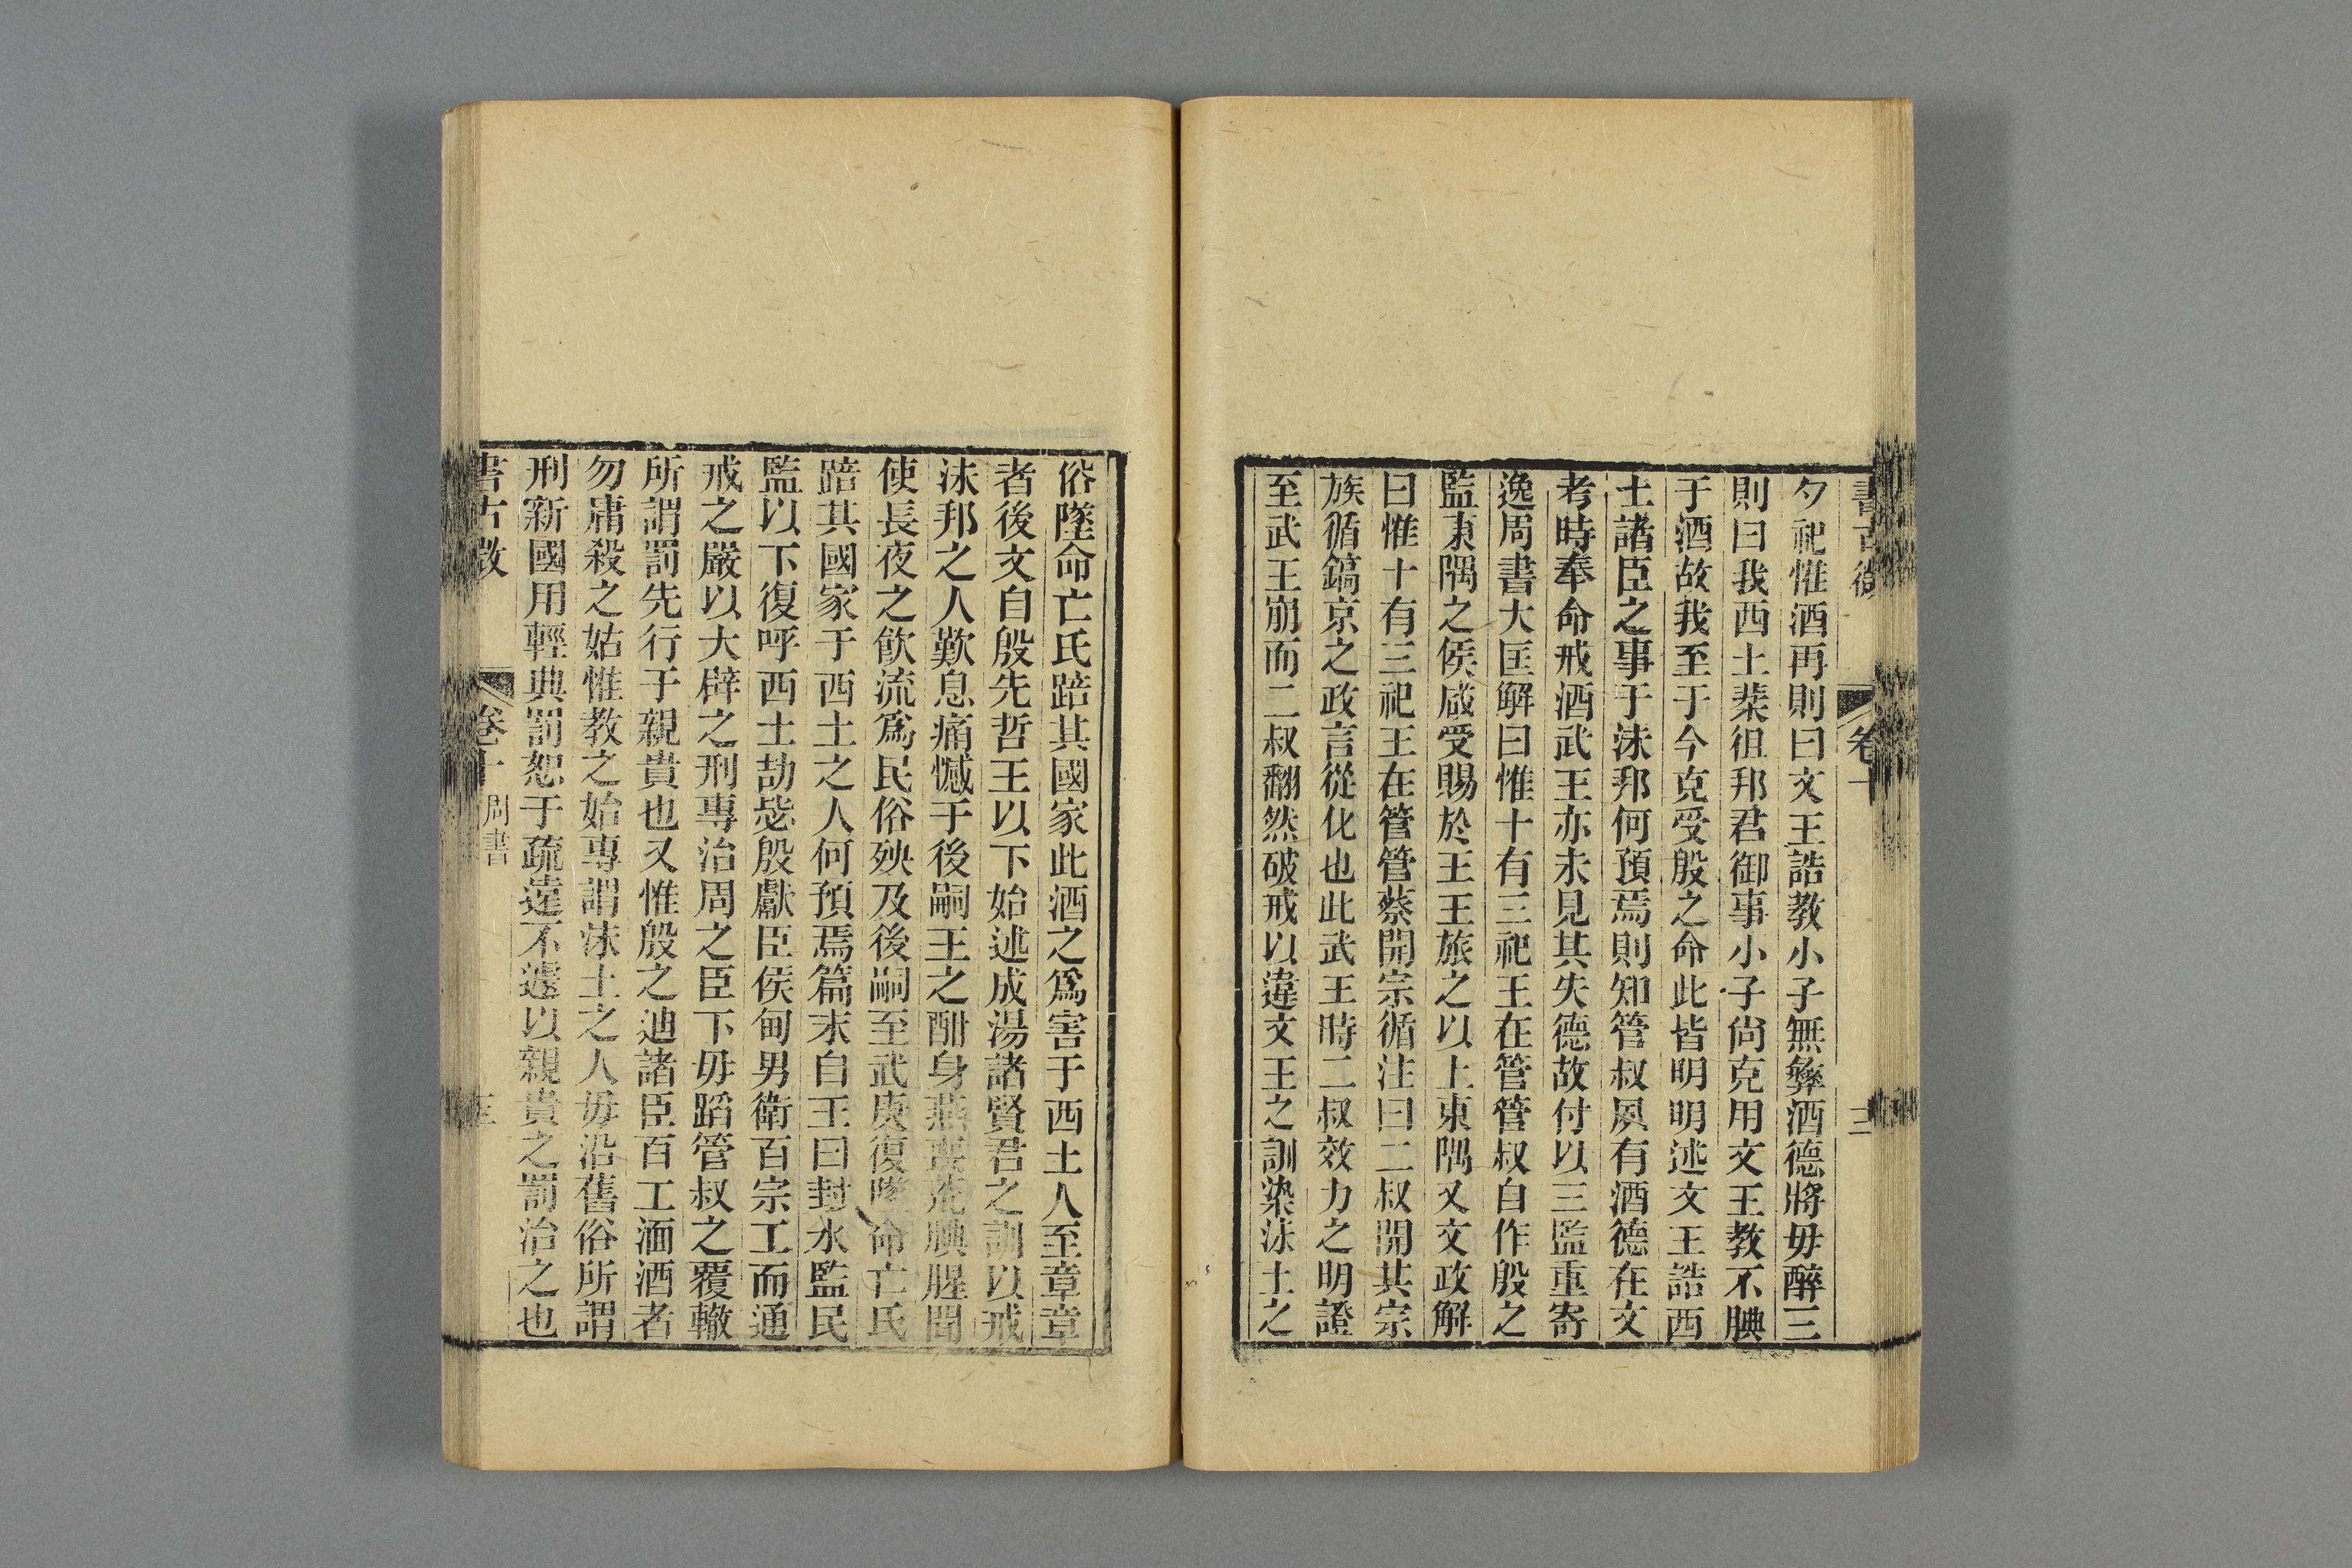 書古微 卷十 二
夕祀惟酒再則曰文王誥教小子無彝酒德將毋醉三
則曰我西土棐徂邦君御事小子尙克用文王教不腆
于酒故我至于今克受殷之命此皆明明述文王誥西
土諸臣之事于沬邦何預焉則知管叔夙有酒德在文
考時奉命戒酒武王亦未見其失德故付以三監重寄
逸周書大匡解曰惟十有三祀王在管管叔自作殷之
監東隅之侯咸受賜於王王旅之以上東隅又文政解
曰惟十有三祀王在管管蔡開宗循注曰二叔開其宗
族循鎬京之政言從化也此武王時二叔效力之明證
至武王崩而二叔翻然破戒以違文王之訓染沬土之
俗墜命亡氏踣其國家此酒之爲害于西土人至章章
者後文自殷先哲王以下始述成湯諸賢君之訓以戒
沬邦之人歎息痛憾于後嗣王之酣身燕喪荒腆腥聞
使長夜之飮流爲民俗殃及後嗣至武庚復墜命亡氏
踣其國家于西土之人何預焉篇末自王曰封永監民
監以下復呼西土劼毖殷獻臣侯甸男衛百宗工而通
戒之嚴以大辟之刑專治周之臣下毋蹈管叔之覆轍
所謂罰先行于親貴也又惟殷之迪諸臣百工湎酒者
勿庸殺之姑惟教之始專謂沬土之人毋沿舊俗所謂
刑新國用輕典罰恕于疏遠不遽以親貴之罰治之也
書古微 卷十 周書 三